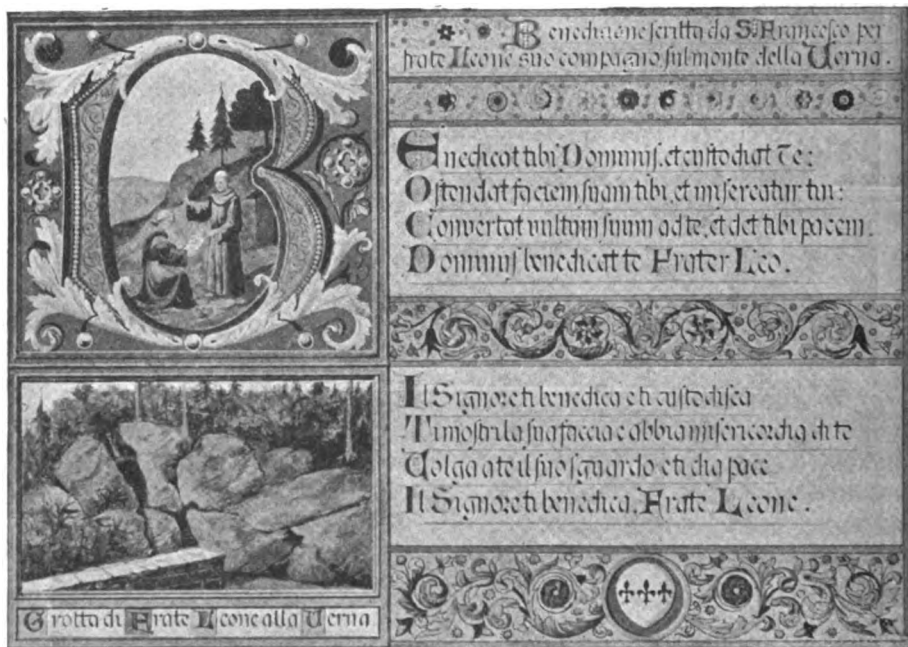 Benedizione scritta da S. Francesco per
frate Leone suo compagno sul monte della Verna.
Enedicat tibi Dominus, et custodiat Te:
Ostendat faciem suam tibi, et misereatur tui:
Convertat vultum suum ad te, et det tibi pacem.
Dominus benedicat te Frater Leo.
Il Signore ti benedica e ti custodisca
Ti mostri la sua faccia e abbia misericordia di te
Volga a te il suo sguardo e ti dia pace
Il Signore ti benedica, Frate Leone.
Grotta di Frate Leone alla Verna